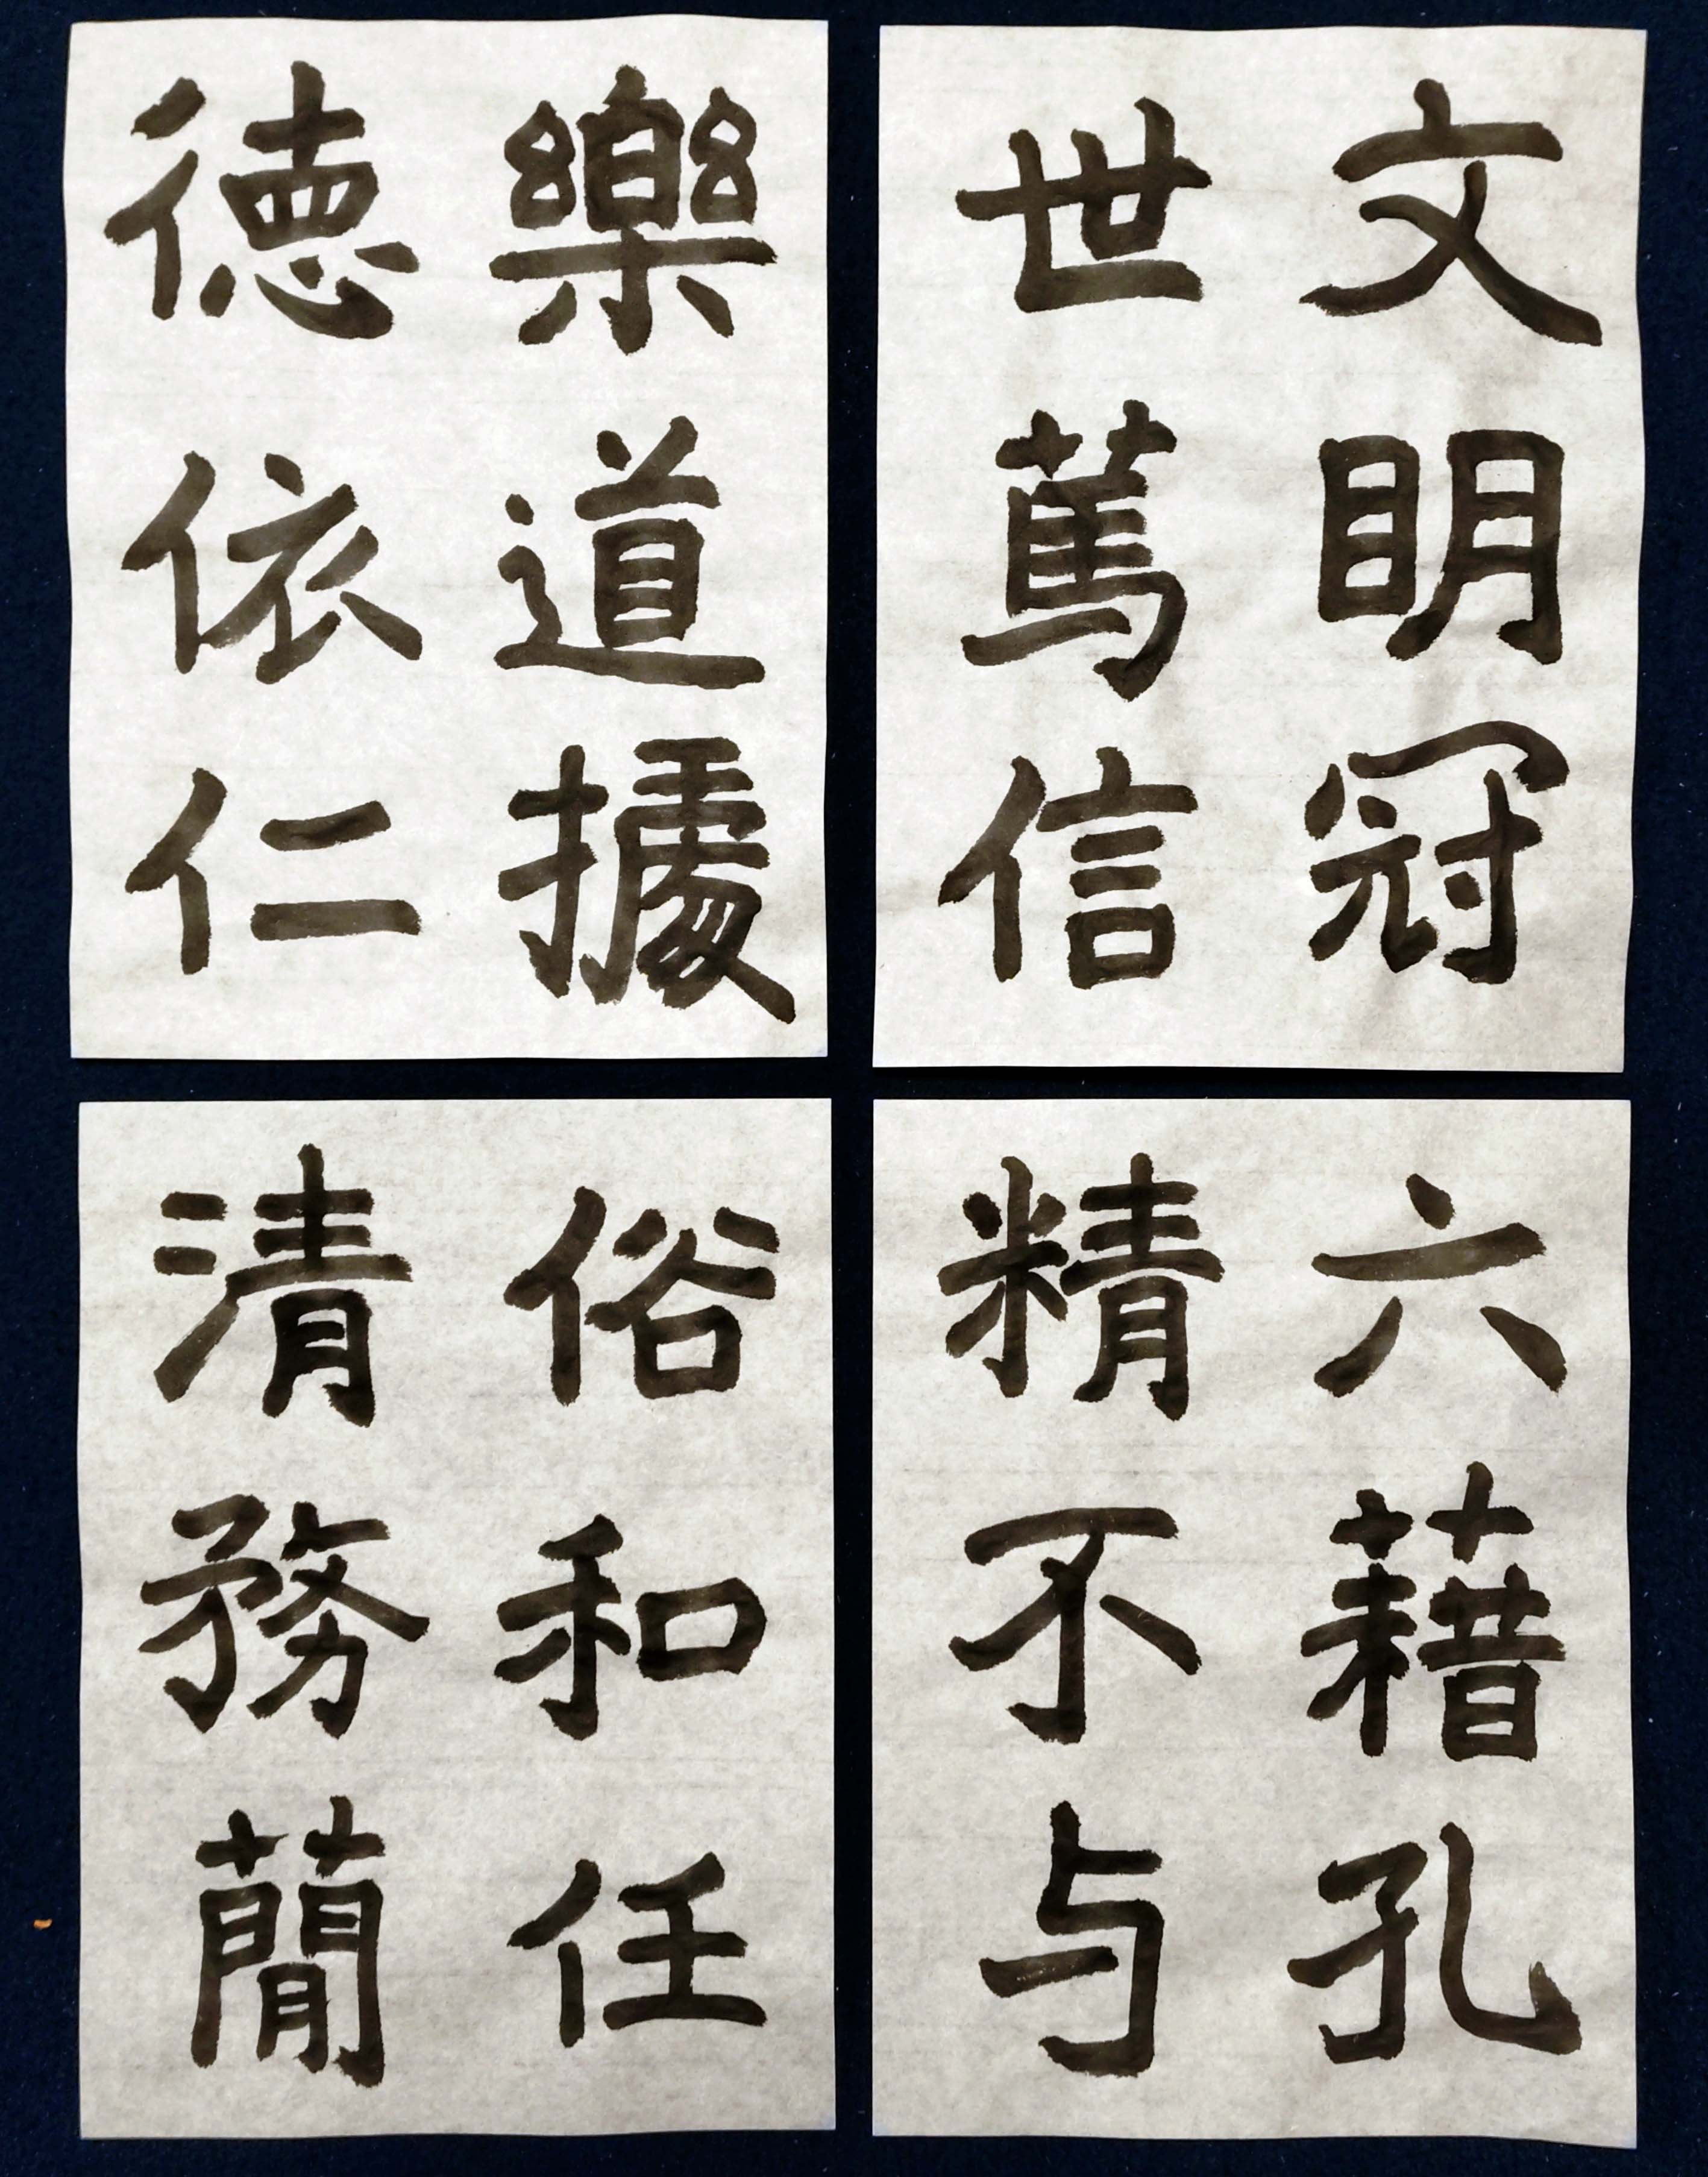 文明冠
世篤信
樂道據
德依仁
六藉孔
精不与
俗和任
清務蕳